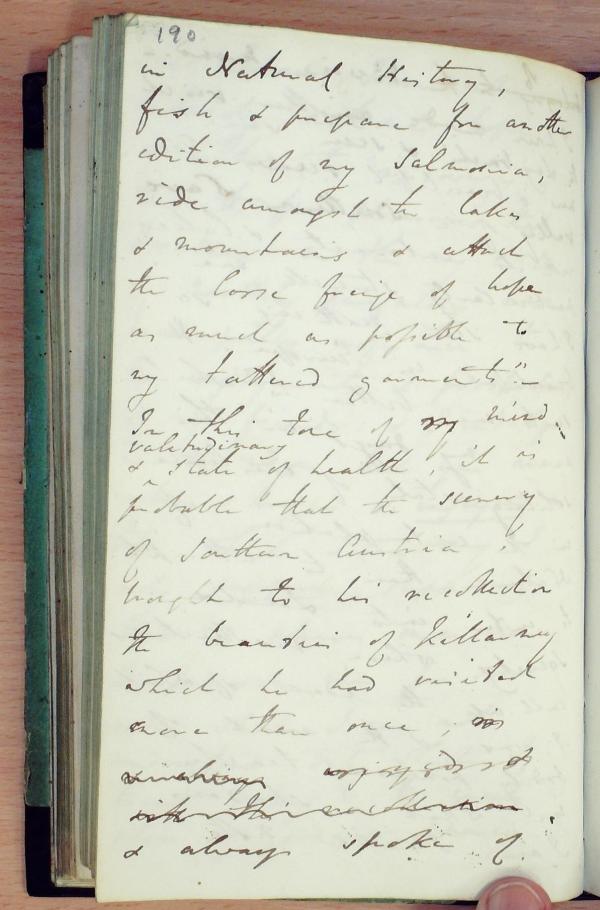 190
in Natural History,
fish & prepare for another
edition of my Salmonia,
ride amongst the lakes
& mountains & attach
the loose fringe of hope
as much as possible to
my tattered garments"–
In this tone of my mind
valetudinary
& state of health, it is
probable that the scenery
of Southern Austria
brought to his recollection
the beauties of Killarney
which he had visited
more than once, in
& always spoke of